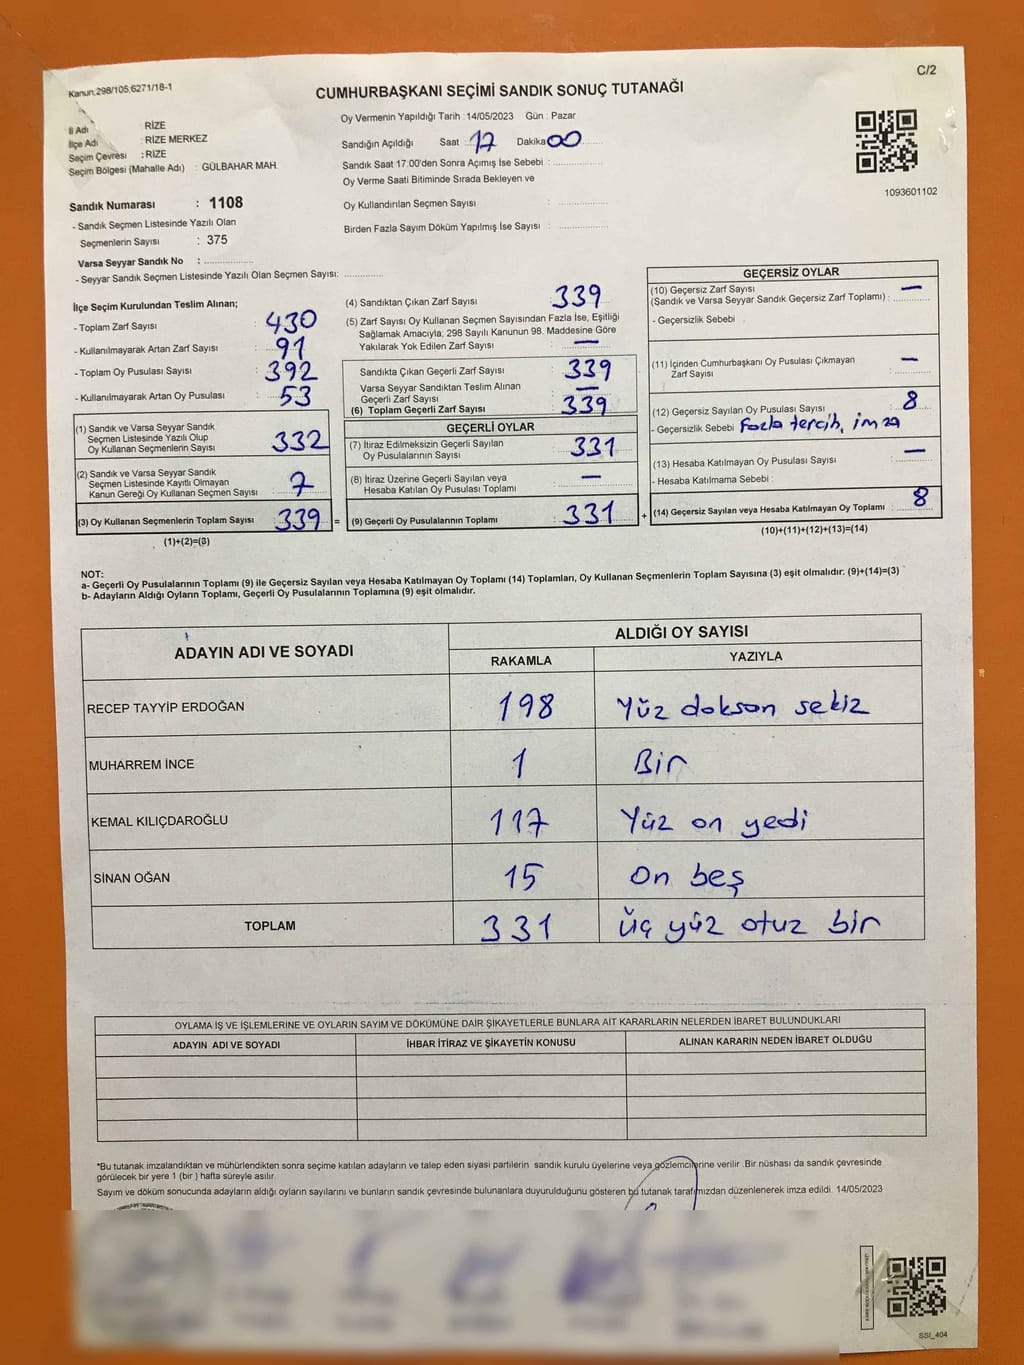 C/2
Kanun:298/105,6271/18-1
CUMHURBAŞKANI SEÇİMİ SANDIK SONUÇ TUTANAĞI
İl Adı : RİZE
İlçe Adı : RİZE MERKEZ
Seçim Çevresi : RİZE
Seçim Bölgesi (Mahalle Adı) : GÜLBAHAR MAH.
Sandık Numarası : 1108
- Sandık Seçmen Listesinde Yazılı Olan
Seçmenlerin Sayısı : 375
Varsa Seyyar Sandık No : ..............
- Seyyar Sandık Seçmen Listesinde Yazılı Olan Seçmen Sayısı: ..............
Oy Vermenin Yapıldığı Tarih :14/05/2023 Gün : Pazar
Sandığın Açıldığı Saat : 17 Dakika 00
Sandık Saat 17.00'den Sonra Açımış İse Sebebi : ..............
Oy Verme Saati Bitiminde Sırada Bekleyen ve
Oy Kullandırılan Seçmen Sayısı : ..............
Birden Fazla Sayım Döküm Yapılmış İse Sayısı : ..............
1093601102
İlçe Seçim Kurulundan Teslim Alınan;
- Toplam Zarf Sayısı : 430
- Kullanılmayarak Artan Zarf Sayısı : 91
- Toplam Oy Pusulası Sayısı : 392
- Kullanılmayarak Artan Oy Pusulası : 53
(1) Sandık ve Varsa Seyyar Sandık
Seçmen Listesinde Yazılı Olup
Oy Kullanan Seçmenlerin Sayısı 332
(2) Sandık ve Varsa Seyyar Sandık
Seçmen Listesinde Kayıtlı Olmayan
Kanun Gereği Oy Kullanan Seçmen Sayısı : 7
(3) Oy Kullanan Seçmenlerin Toplam Sayısı : 339 =
(1)+(2)=(3)
(4) Sandıktan Çıkan Zarf Sayısı : 339
(5) Zarf Sayısı Oy Kullanan Seçmen Sayısından Fazla İse, Eşitliği
Sağlamak Amacıyla; 298 Sayılı Kanunun 98. Maddesine Göre
Yakılarak Yok Edilen Zarf Sayısı : —
Sandıkta Çıkan Geçerli Zarf Sayısı : 339
Varsa Seyyar Sandıktan Teslim Alınan
Geçerli Zarf Sayısı : —
(6) Toplam Geçerli Zarf Sayısı : 339
GEÇERLİ OYLAR
(7) İtiraz Edilmeksizin Geçerli Sayılan
Oy Pusulalarının Sayısı : 331
(8) İtiraz Üzerine Geçerli Sayılan veya
Hesaba Katılan Oy Pusulası Toplamı : —
(9) Geçerli Oy Pusulalarının Toplamı : 331 +
GEÇERSİZ OYLAR
(10) Geçersiz Zarf Sayısı
(Sandık ve Varsa Seyyar Sandık Geçersiz Zarf Toplamı) : —
- Geçersizlik Sebebi :
(11) İçinden Cumhurbaşkanı Oy Pusulası Çıkmayan
Zarf Sayısı : —
(12) Geçersiz Sayılan Oy Pusulası Sayısı : 8
- Geçersizlik Sebebi Fazla tercih, imza
(13) Hesaba Katılmayan Oy Pusulası Sayısı : —
- Hesaba Katılmama Sebebi :
(14) Geçersiz Sayılan veya Hesaba Katılmayan Oy Toplamı : 8
(10)+(11)+(12)+(13)=(14)
NOT:
a- Geçerli Oy Pusulalarının Toplamı (9) ile Geçersiz Sayılan veya Hesaba Katılmayan Oy Toplamı (14) Toplamları, Oy Kullanan Seçmenlerin Toplam Sayısına (3) eşit olmalıdır. (9)+(14)=(3)
b- Adayların Aldığı Oyların Toplamı, Geçerli Oy Pusulalarının Toplamına (9) eşit olmalıdır.
ADAYIN ADI VE SOYADI ALDIĞI OY SAYISI
RAKAMLA YAZIYLA
RECEP TAYYİP ERDOĞAN 198 Yüz doksan sekiz
MUHARREM İNCE 1 Bir
KEMAL KILIÇDAROĞLU 117 Yüz on yedi
SİNAN OĞAN 15 On beş
TOPLAM 331 üç yüz otuz bir
OYLAMA İŞ VE İŞLEMLERİNE VE OYLARIN SAYIM VE DÖKÜMÜNE DAİR ŞİKAYETLERLE BUNLARA AİT KARARLARIN NELERDEN İBARET BULUNDUKLARI
ADAYIN ADI VE SOYADI İHBAR İTİRAZ VE ŞİKAYETİN KONUSU ALINAN KARARIN NEDEN İBARET OLDUĞU
*Bu tutanak imzalandıktan ve mühürlendikten sonra seçime katılan adayların ve talep eden siyasi partilerin sandık kurulu üyelerine veya gözlemcilerine verilir .Bir nüshası da sandık çevresinde
görülecek bir yere 1 (bir ) hafta süreyle asılır.
Sayım ve döküm sonucunda adayların aldığı oyların sayılarını ve bunların sandık çevresinde bulunanlara duyurulduğunu gösteren bu tutanak tarafımızdan düzenlenerek imza edildi. 14/05/2023
SSI_404